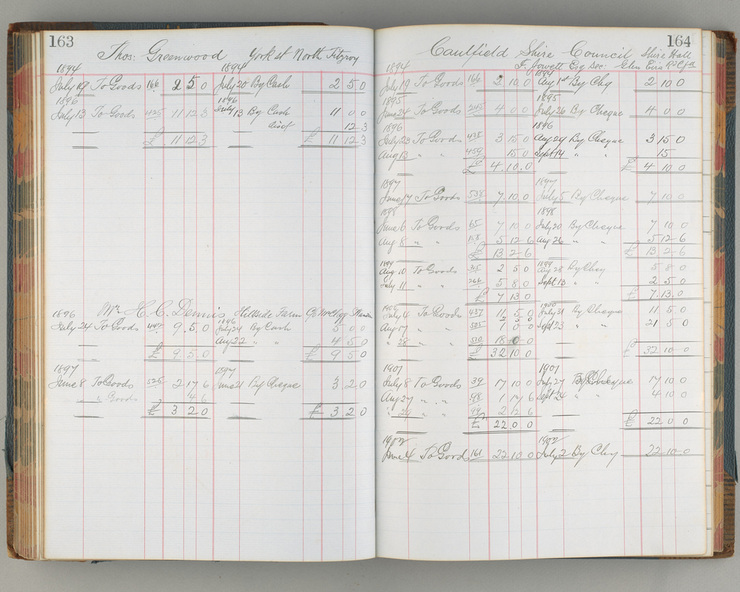 163
Thos. Greenwood York st North Fitzroy
1894 1894
July 19 To Goods 166 2 5 0 July 20 By Cash 2 5 0
1896 1896
July 13 To Goods 11 12 3 July 13 By Cash 11 0 0
12 3
£ 11 12 3 £ 11 12 3
Mr H. C. Dennis Hillside Farm
1896 1896
July 24 To Goods 9 5 0 July 24 By Cash 5 0 0
Aug 22 " " 4 5 0
£ 9 5 0 £ 9 5 0
1897 1897
June 8 To Goods 2 17 6 June 21 By Cheque 3 2 0
" " Goods 4 6
£ 3 2 0 £ 3 2 0
164
Caulfield Shire Council Shire Hall
Glen
1894 1894
July 19 To Goods 166 2 10 0 Aug 1st By Chq 2 10 0
1895 1895
June 24 To Goods 4 0 0 July 26 By Cheque 4 0 0
1896 1896
July 23 To Goods 3 15 0 Aug 24 By Cheque 3 15 0
Aug 13 " " 15 0 Sept 14 " " 15
£ 4 10 0 £ 4 10 0
1897 1897
June 17 To Goods 7 10 0 July 5 By Cheque 7 10 0
1898 1898
June 6 To Goods 7 10 0 July 20 By Cheque 7 10 0
Aug 8 " " 5 12 6 Aug 26 " " 5 12 6
£ 13 2 6 £ 13 2 6
1899 1899
To Goods 2 5 0 Aug 28 By Chq 5 8 0
July 11 " " 5 8 0 Sept 13 " " 2 5 0
£ 7 13 0 £ 7 13 0
July 4 To Goods 11 5 0 July 31 By Cheque 11 5 0
Aug 17 " " Sept 23 " " 21 5 0
£ 32 10 0 £ 32 10 0
1901 1901
July 8 To Goods 39 17 10 0 July 27 By Cheque 17 10 0
Aug 27 " " 1 17 6 Sept 24 " " 4 10 0
" " " 2 12 6
£ 22 0 0 £ 22 0 0
1902 1902
June 4 To Good 161 22 10 0 July 2 By Chq 22 10 0